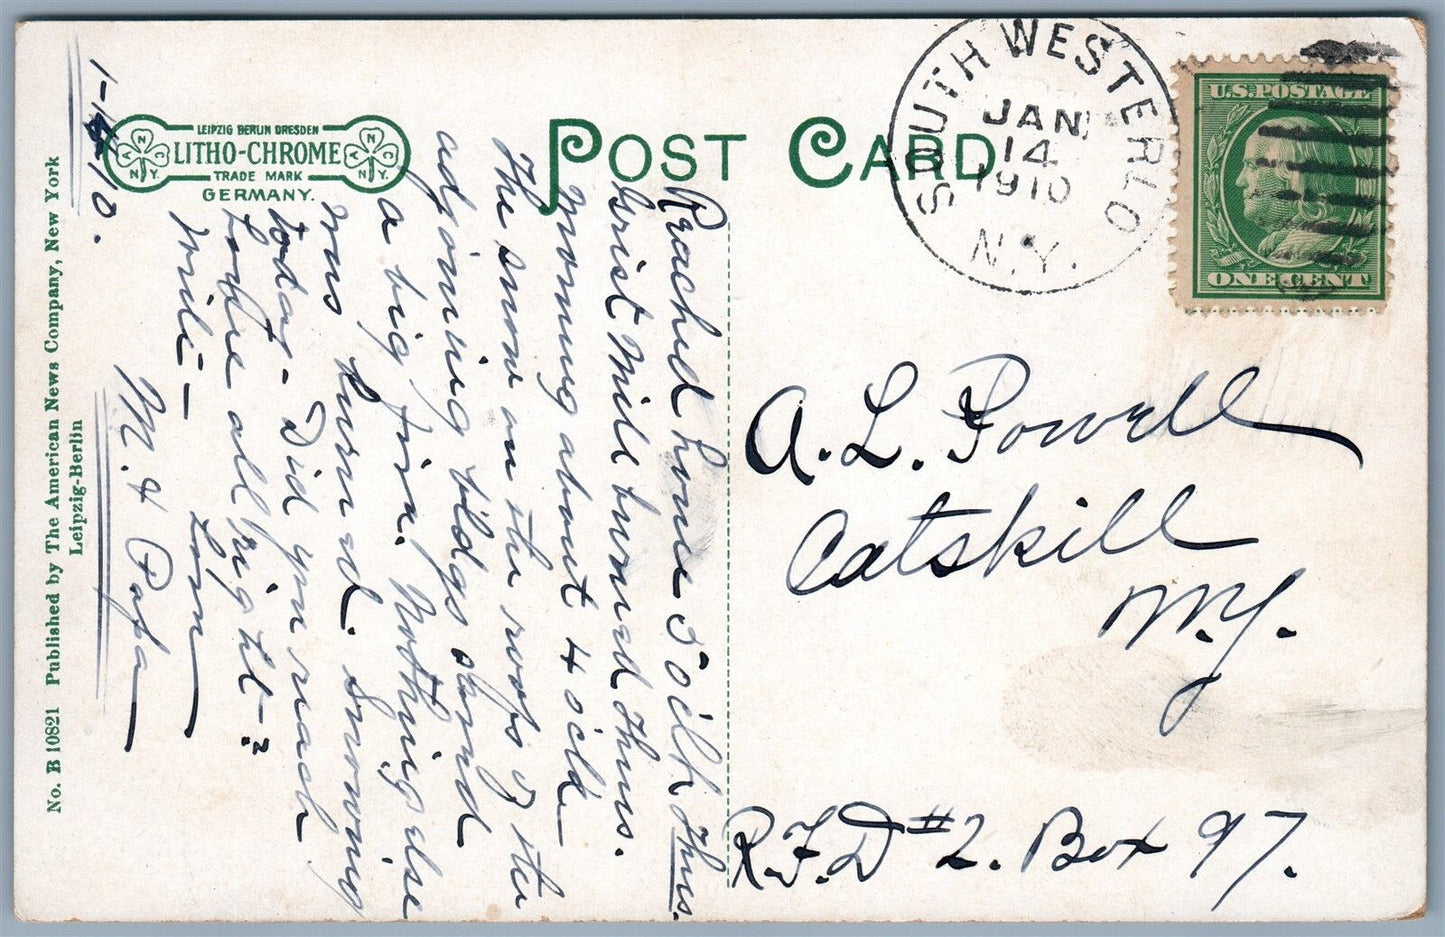 POST CARD
LEIPZIG BERLIN DRESDEN
LITHO-CHROME
TRADE MARK
GERMANY.
A N C N.Y.
A N C N.Y.
No. B 10821 Published by The American News Company, New York
Leipzig-Berlin
SOUTH WESTERLO
JAN
14
1910
N.Y.
U.S. POSTAGE
ONE CENT
1-14-10.
Reached home 5 o'clk Thurs.
Grist Mill burned Thurs.
morning about 4 o'clk
The snow on the roofs of the
adjoining bldgs saved
a big fire. Nothing else
was burned. Snowing
today - Did you reach
home all right-?
Write - Love
M. & Papa
A. L. Powell
Catskill
N.Y.
R.F.D #2. Box 97.